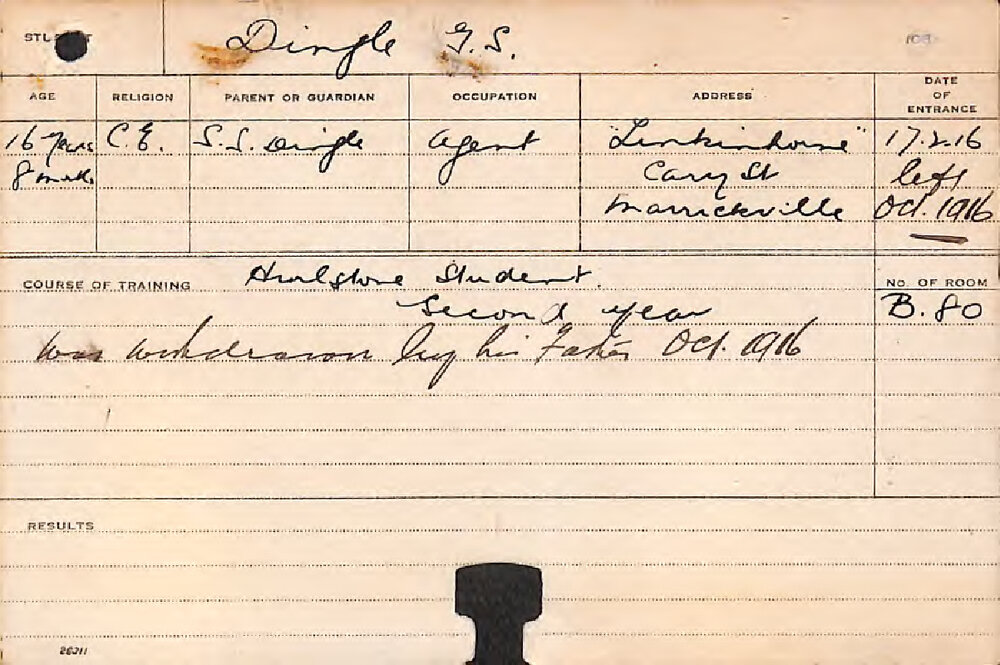 STUDENT Dingle G. S.
AGE RELIGION PARENT OR GUARDIAN OCCUPATION ADDRESS DATE OF ENTRANCE
16 years C.E. S. S. Dingle Agent "Linkinhorne" 17.2.16
8 mnths Cary St left
Marrickville Oct. 1916
COURSE OF TRAINING Hurlstone Student. NO. OF ROOM
Second year B. 80
was withdrawn by his Father Oct. 1916
RESULTS